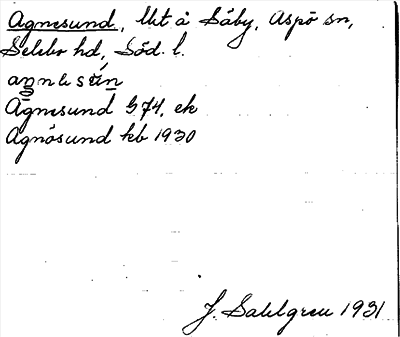 Agnesund, lht å Säby, Aspö sn,
Selebo hd, Söd. l.
Agnesund G 74, ek
Agnösund kb 1930
J. Sahlgren 1931